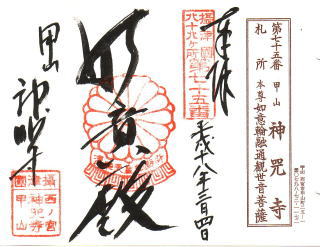 第七十五番 甲山
札所 本尊如意輪融通観世音菩薩
神咒寺
奉拝
攝津國
八十八ヶ所
第七十五番
平成十八年三月四日
如意殿
甲山
神呪寺
攝津
西ノ宮
神呪寺
國甲山